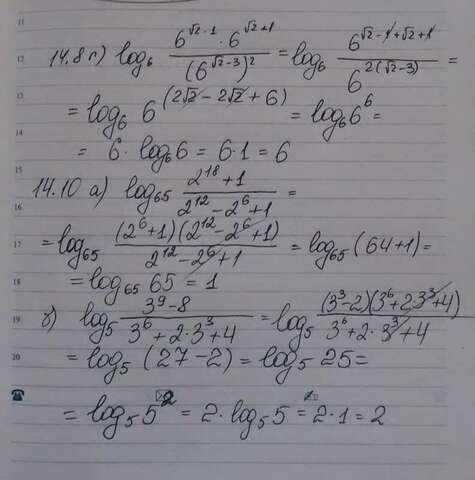 11
12
13
14
15
16
17
18
19
20
14.8 г) log₆ (6^(√2-1) · 6^(√2+1))/((6^(√2-3))²) = log₆ 6^(√2-1+√2+1)/6^(2(√2-3)) =
= log₆ 6^(2√2 - 2√2 + 6) = log₆ 6⁶ =
= 6 · log₆ 6 = 6 · 1 = 6
14.10 а) log₆₅ (2¹⁸ + 1)/(2¹² - 2⁶ + 1) =
= log₆₅ ((2⁶+1)(2¹² - 2⁶ + 1))/(2¹² - 2⁶ + 1) = log₆₅ (64+1) =
= log₆₅ 65 = 1
б) log₅ (3⁹ - 8)/(3⁶ + 2·3³ + 4) = log₅ ((3³-2)(3⁶+2·3³+4))/(3⁶+2·3³+4)
= log₅ (27-2) = log₅ 25 =
= log₅ 5² = 2 · log₅ 5 = 2 · 1 = 2